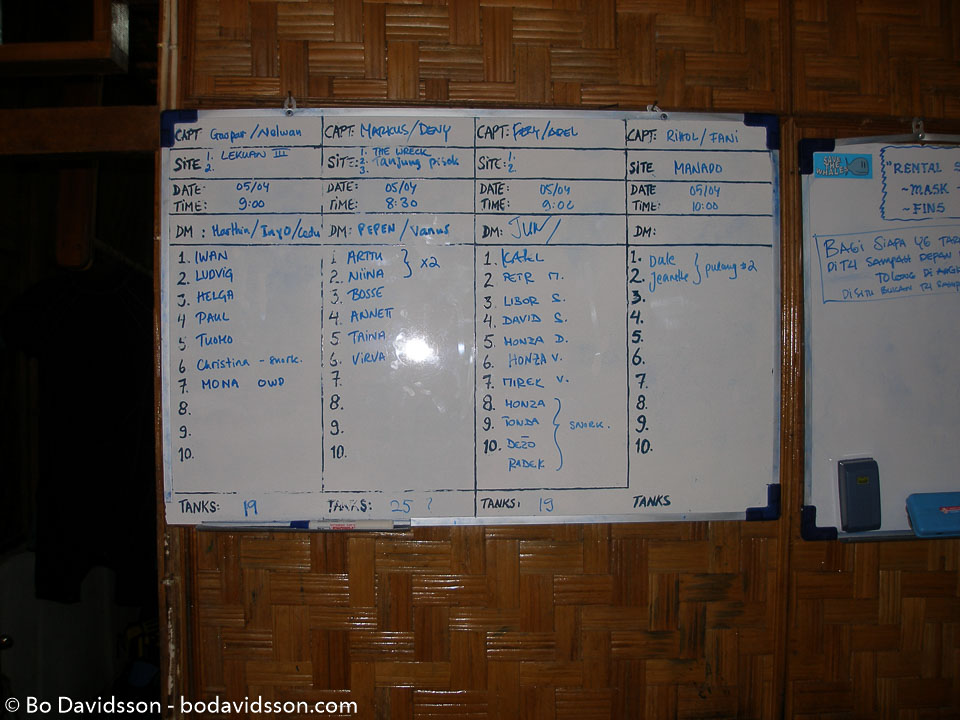 CAPT Gaspar/Nelwan
SITE 1. LEKUAN III
2.
DATE: 05/04
TIME: 9:00
DM: Marthin/Inyo/
1. IWAN
2. LUDVIG
3. HELGA
4 PAUL
5 TUOMO
6 Christina - snork.
7 MONA OWD
8.
9.
10.
TANKS: 19
CAPT: MARKUS/DENY
SITE: 1. THE WRECK
2. Tanjung Pisok
3.
DATE: 05/04
TIME: 8:30
DM: PEPEN/Vanus
1. ARTTU
2. NIINA } x2
3. BOSSE
4. ANNETT
5 TAINA
6. VIRVA
7.
8.
9.
10.
TANKS: 25 ?
CAPT: FERY/ABEL
SITE: 1.
2.
DATE: 05/04
TIME: 9:00
DM: JUN/
1. KAREL
2. PETR M.
3. LIBOR S.
4. DAVID S.
5 HONZA D.
6. HONZA V.
7. MIREK V.
8. HONZA
9. TONDA
10. DEŽO
RADEK } SNORK.
TANKS: 19
CAPT: RIHOL/FANI
SITE MANADO
DATE 05/04
TIME: 10:00
DM:
1. Dale
2. Jeanette } pulang #2
3.
4.
5.
6.
7.
8.
9.
10.
TANKS
SAVE THE WHALE
"RENTAL S
~MASK
~FINS
BAGI SIAPA YG TAR
DI TRI SAMPAH DEPAN
TOLONG DI
DISITU BUKAN TRI SAMP
© Bo Davidsson - bodavidsson.com